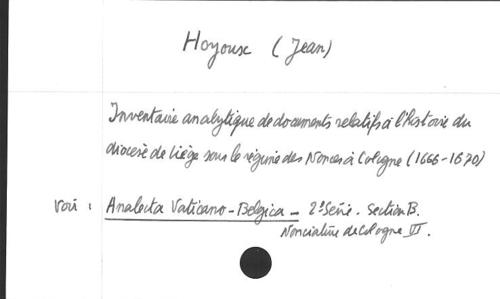 Hoyoux (Jean)
Inventaire analytique de documents relatifs à l'histoire du
diocèse de Liège sous le régime des Nonces à Cologne (1666-1670)
Voir : Analecta Vaticano-Belgica - 2e Série. Section B.
Nonciature de Cologne VI.